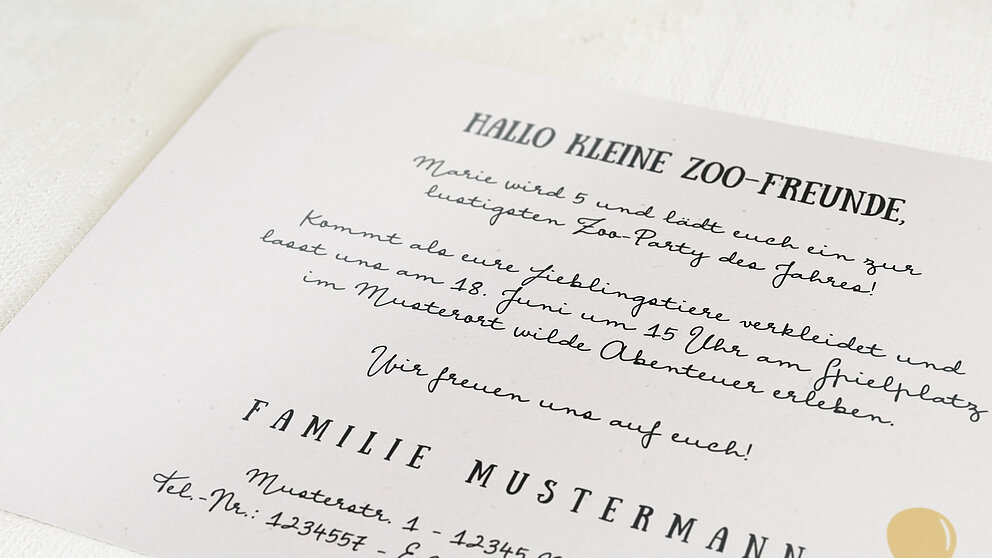 HALLO KLEINE ZOO-FREUNDE,
Marie wird 5 und lädt euch ein zur
lustigsten Zoo-Party des Jahres!
Kommt als eure Lieblingstiere verkleidet und
lasst uns am 18. Juni um 15 Uhr am Spielplatz
im Musterort wilde Abenteuer erleben.
Wir freuen uns auf euch!
FAMILIE MUSTERMANN
Musterstr. 1 - 12345
Tel.-Nr.: 1234557 -